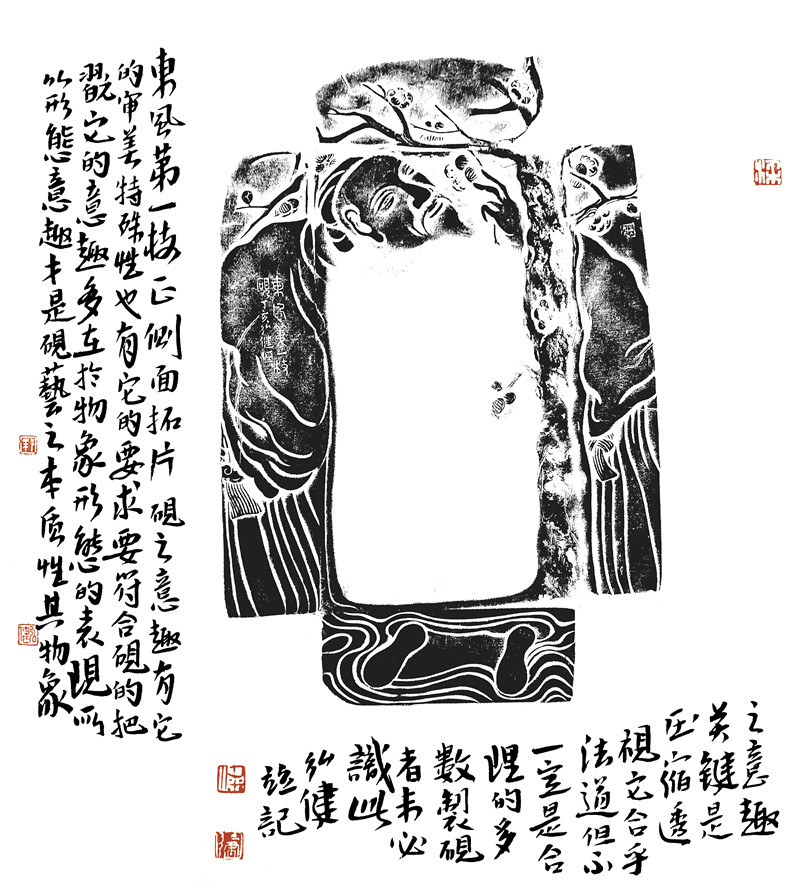 東風第一枝正側面拓片硯之意趣有它
的审美特殊性也有它的要求要符合硯的把
翫它的意趣多在於物象形態的表現所
以形態意趣才是硯藝之本质性其物象
之意趣
关鍵是
压縮透
視它合乎
法道但不
一定是合
理的多
數製硯
者未必
識此
健
並記
東風第一枝
硯丁亥